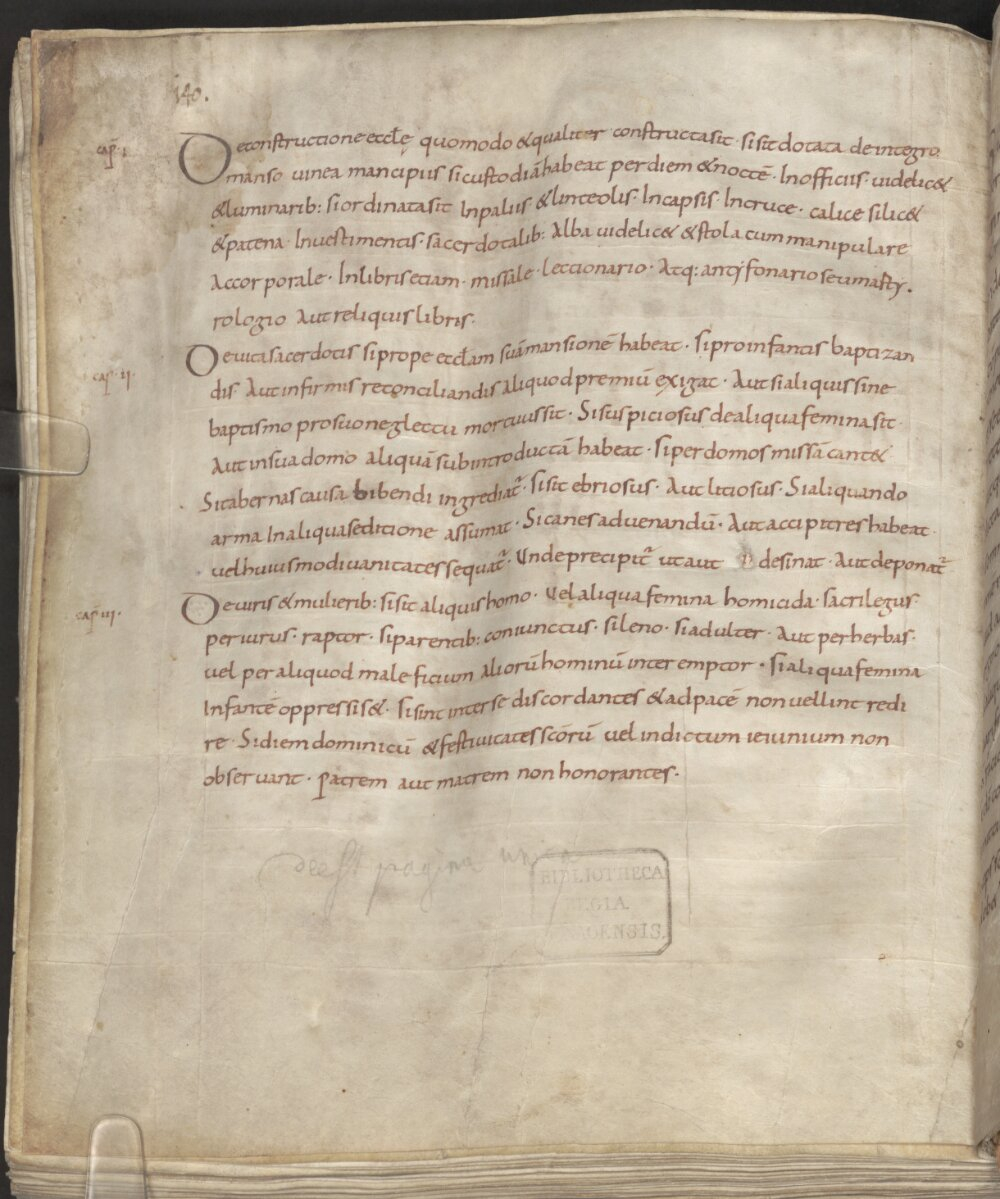 140.
cap̄ · I De constructione eccłę quomodo & qualiter constructa sit · si sit dotata de integro
manso vinea mancipiis si custodiā habeat per diem & noctē · In officiis · videlic&
& luminarib: si ordinata sit In paliis & linteolis · In capsis · In cruce · calice silic&
& patena · In vestimentis · sacerdotalib: Alba videlic& & stola cum manipulare
Accorporale · In libris etiam · missale · leccionario · Atq: antyfonario seu marty ·
rologio Aut reliquis libris ·
cap̄ · II · De vita sacerdotis si prope eccłam suā mansionē habeat · si pro infantis baptizan
dis · Aut infirmis reconciliandis aliquod premiū exigat · Aut si aliquis sine
baptismo pro suo neglectu mortuus sit · Si suspiciosus de aliqua femina sit ·
Aut in sua domo aliquā subintroductā habeat · si per domos missā cant&
Si tabernas causa bibendi ingrediat̄ · si sit ebriosus · Aut litiosus · Si aliquando
arma In aliqua seditione assumat · Si canes ad venandū · Aut accipitres habeat ·
vel huiusmodi vanitates sequat̄ · Unde precipit̄ ut aut desinat · Aut deponat̄
cap̄ · III · De viris & mulierib: si sit aliquis homo · Vel aliqua femina homicida · sacrilegus ·
periurus · raptor · si parentib: coniunctus · si leno · si adulter · Aut per herbas ·
vel per aliquod maleficium aliorū hominū interemptor · si aliqua femina
Infantē oppressiss& · si sint inter se discordantes & ad pacē non vellint redi
re · Si diem dominicū & festivitates scōrū vel indictum ieiunium non
observant · patrem aut matrem non honorantes ·
deest pagina una
BIBLIOTHECA
REGIA